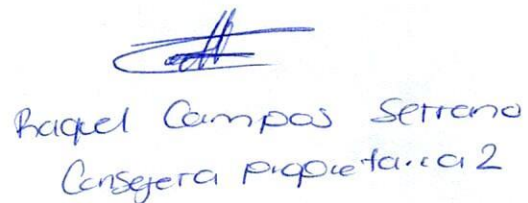 Raquel Campos Serrano
Consejera propietaria 2